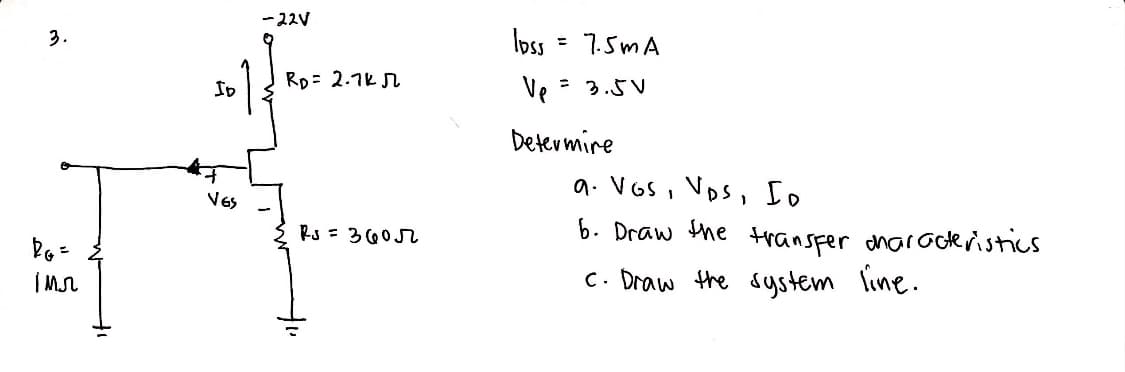 3.
-22V
ID
RD = 2.7K Ω
+
VGS
-
RG =
1MΩ
RS = 360Ω
IDSS = 7.5mA
Vp = 3.5V
Determine
a. VGS, VDS, ID
b. Draw the transfer characteristics
c. Draw the system line.